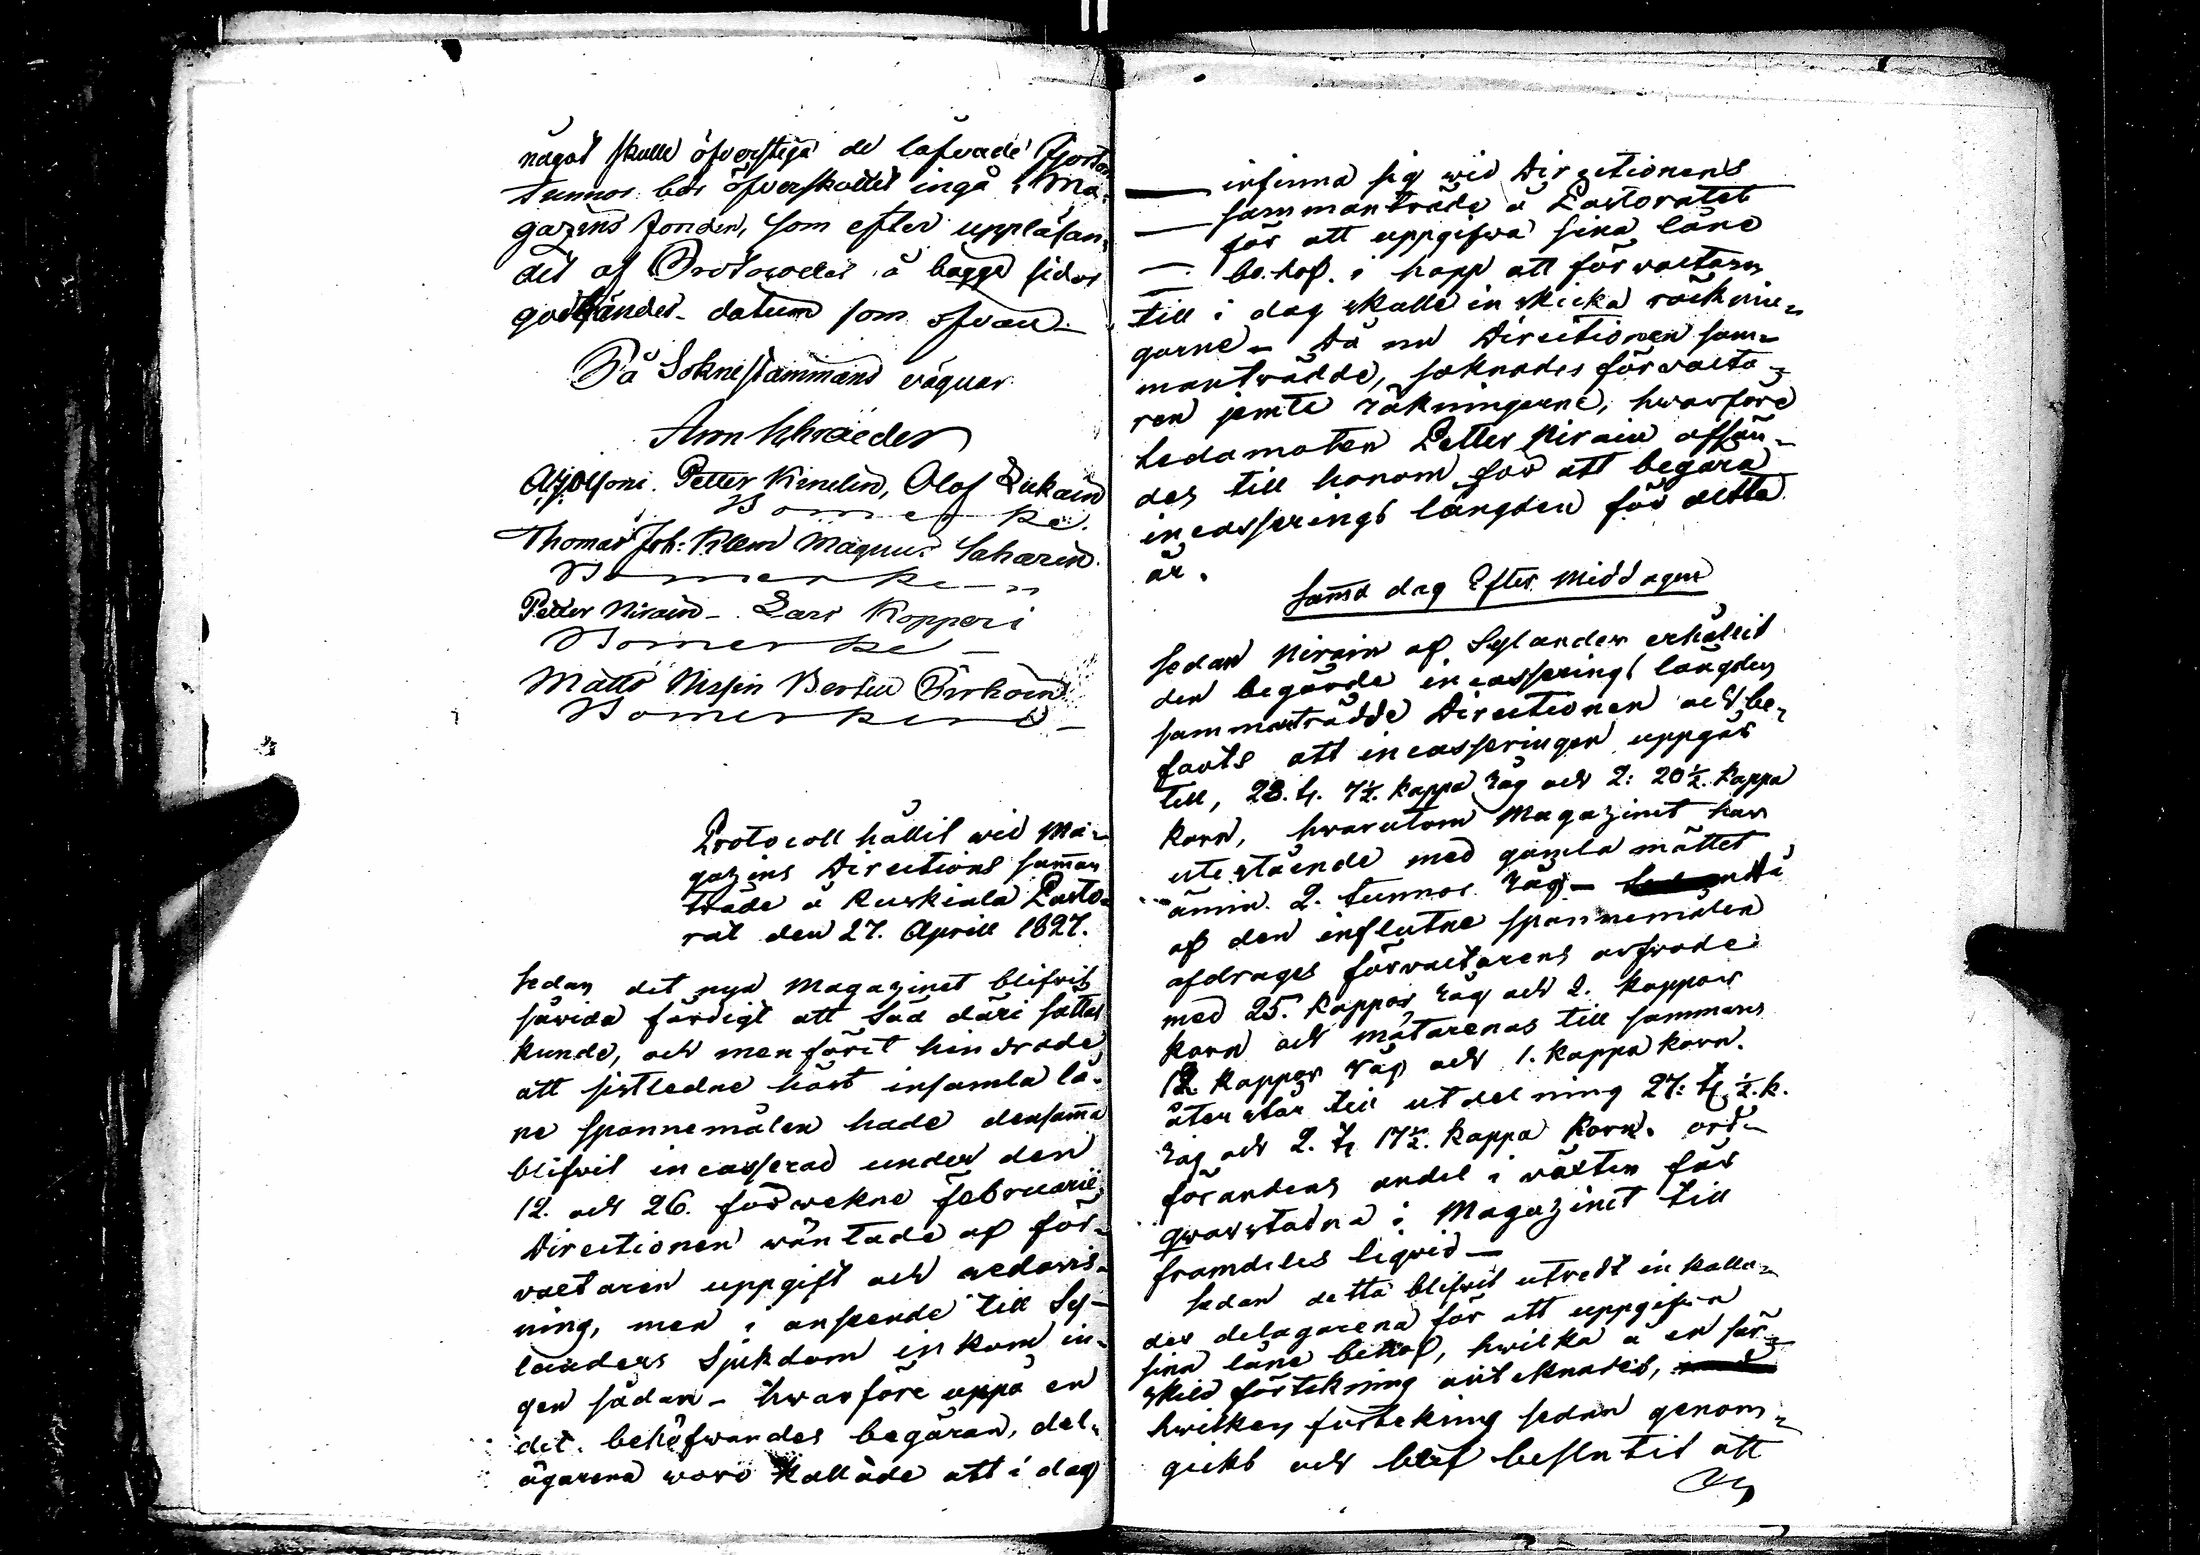 något skulle öfverstiga de lofvade Fjorton
tunnor bör öfverskottet ingå i Ma-
gazins fonden, som efter uppläsan-
det af Protocollet å bägge sidor
godkändes datum som ofvan.
På Soknestämmans vägnar
Aron
Petter Kinelin, Olof Kukain
Bomerke.
Thomas Joh: Magnus Saharin.
Bomerken
Petter Nirain - Lars Kopperi
Bomerke -
Matts Bertil Örrhöin
Bomerken -
Protocoll hållit wid Ma-
gazins Directions samman
träde å Ruskiala Pasto-
rat den 27. Aprill 1827.
Sedan det nya Magazinet blifvit
såvida färdigt att Säd däri sättas
kunde, och menföret hindrade
att sistledne höst insamla lå-
ne spannemålen hade densamma
blifvit incasserad under den
12. och 26. förwekne februarii
Directionen väntade af för-
valtaren uppgift och redovis-
ning, men i anseende till Sy-
landers Sjukdom inkom in-
gen sådan - hwarföre uppå en
del. behöfwandes begäran, del-
ägarena woro kallade att i dag
infinna sig wid Directionens
sammanträde å Pastoratet
för att uppgifwa sina låne
behof. i hopp att förvaltaren
till i dag skulle inskicka räknin-
garne - då nu Directionen sam-
manträdde, saknades förvalta-
ren jemte räkningarne, hwarföre
Ledamoten Petter Nirain afsän-
des till honom för att begära
incasserings längden för detta
år.
Samma dag Efter Middagen
Sedan Nirain af Sylander erhållit
den begärde incasserings längden
sammanträdde Directionen och be-
fants att incasseringen uppgår
till, 28. t. 7½. kappa råg och 2: 20½. kappa
korn, hwarutom Magazinet har
utestående med gamla måttet
ännu 2. tunnor råg - då
af den influtne spannemålen
afdrages förvaltarens arfvode
med 25. kappor råg och 2. kappor
korn och mätarenas till sammans
12. kappor råg och 1. kappa korn.
återstår till utdelning 27: t. ½. k.
råg och 2. t 17½. kappa korn. ord-
förandens andel i räntan får
qwarstadna i Magazinet till
framdeles liqvid -
Sedan detta blifvit utredt inkalla-
des delägarena för att uppgifva
sina låne behof, hwilka å en sär-
skild förtekning anteknades,
hwilken förtekning sedan genom-
gicks och blef beslutit att